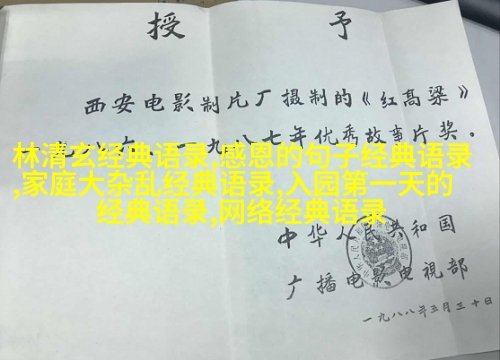 授予
西安电影制片厂摄制的《红高粱》
一九八六、一九八七年优秀故事片奖。
林清玄经典语录,感恩的句子经典语录
,家庭大杂乱经典语录,入园第一天的
经典语录,网络经典语录
中华人民共和国
广播电影电视部
一九八八年三月三十日